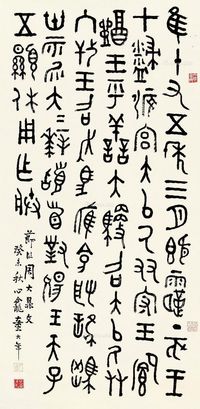 隹十又五年三月既霸丁亥王
才宮大以厥友守王鄉
醴王乎善夫召大以厥友
入王召走馬雁令取
卅二匹易大大拜稽首對揚王天子
不顯休用乍朕
節臨周大鼎文
癸未秋心龕童大年